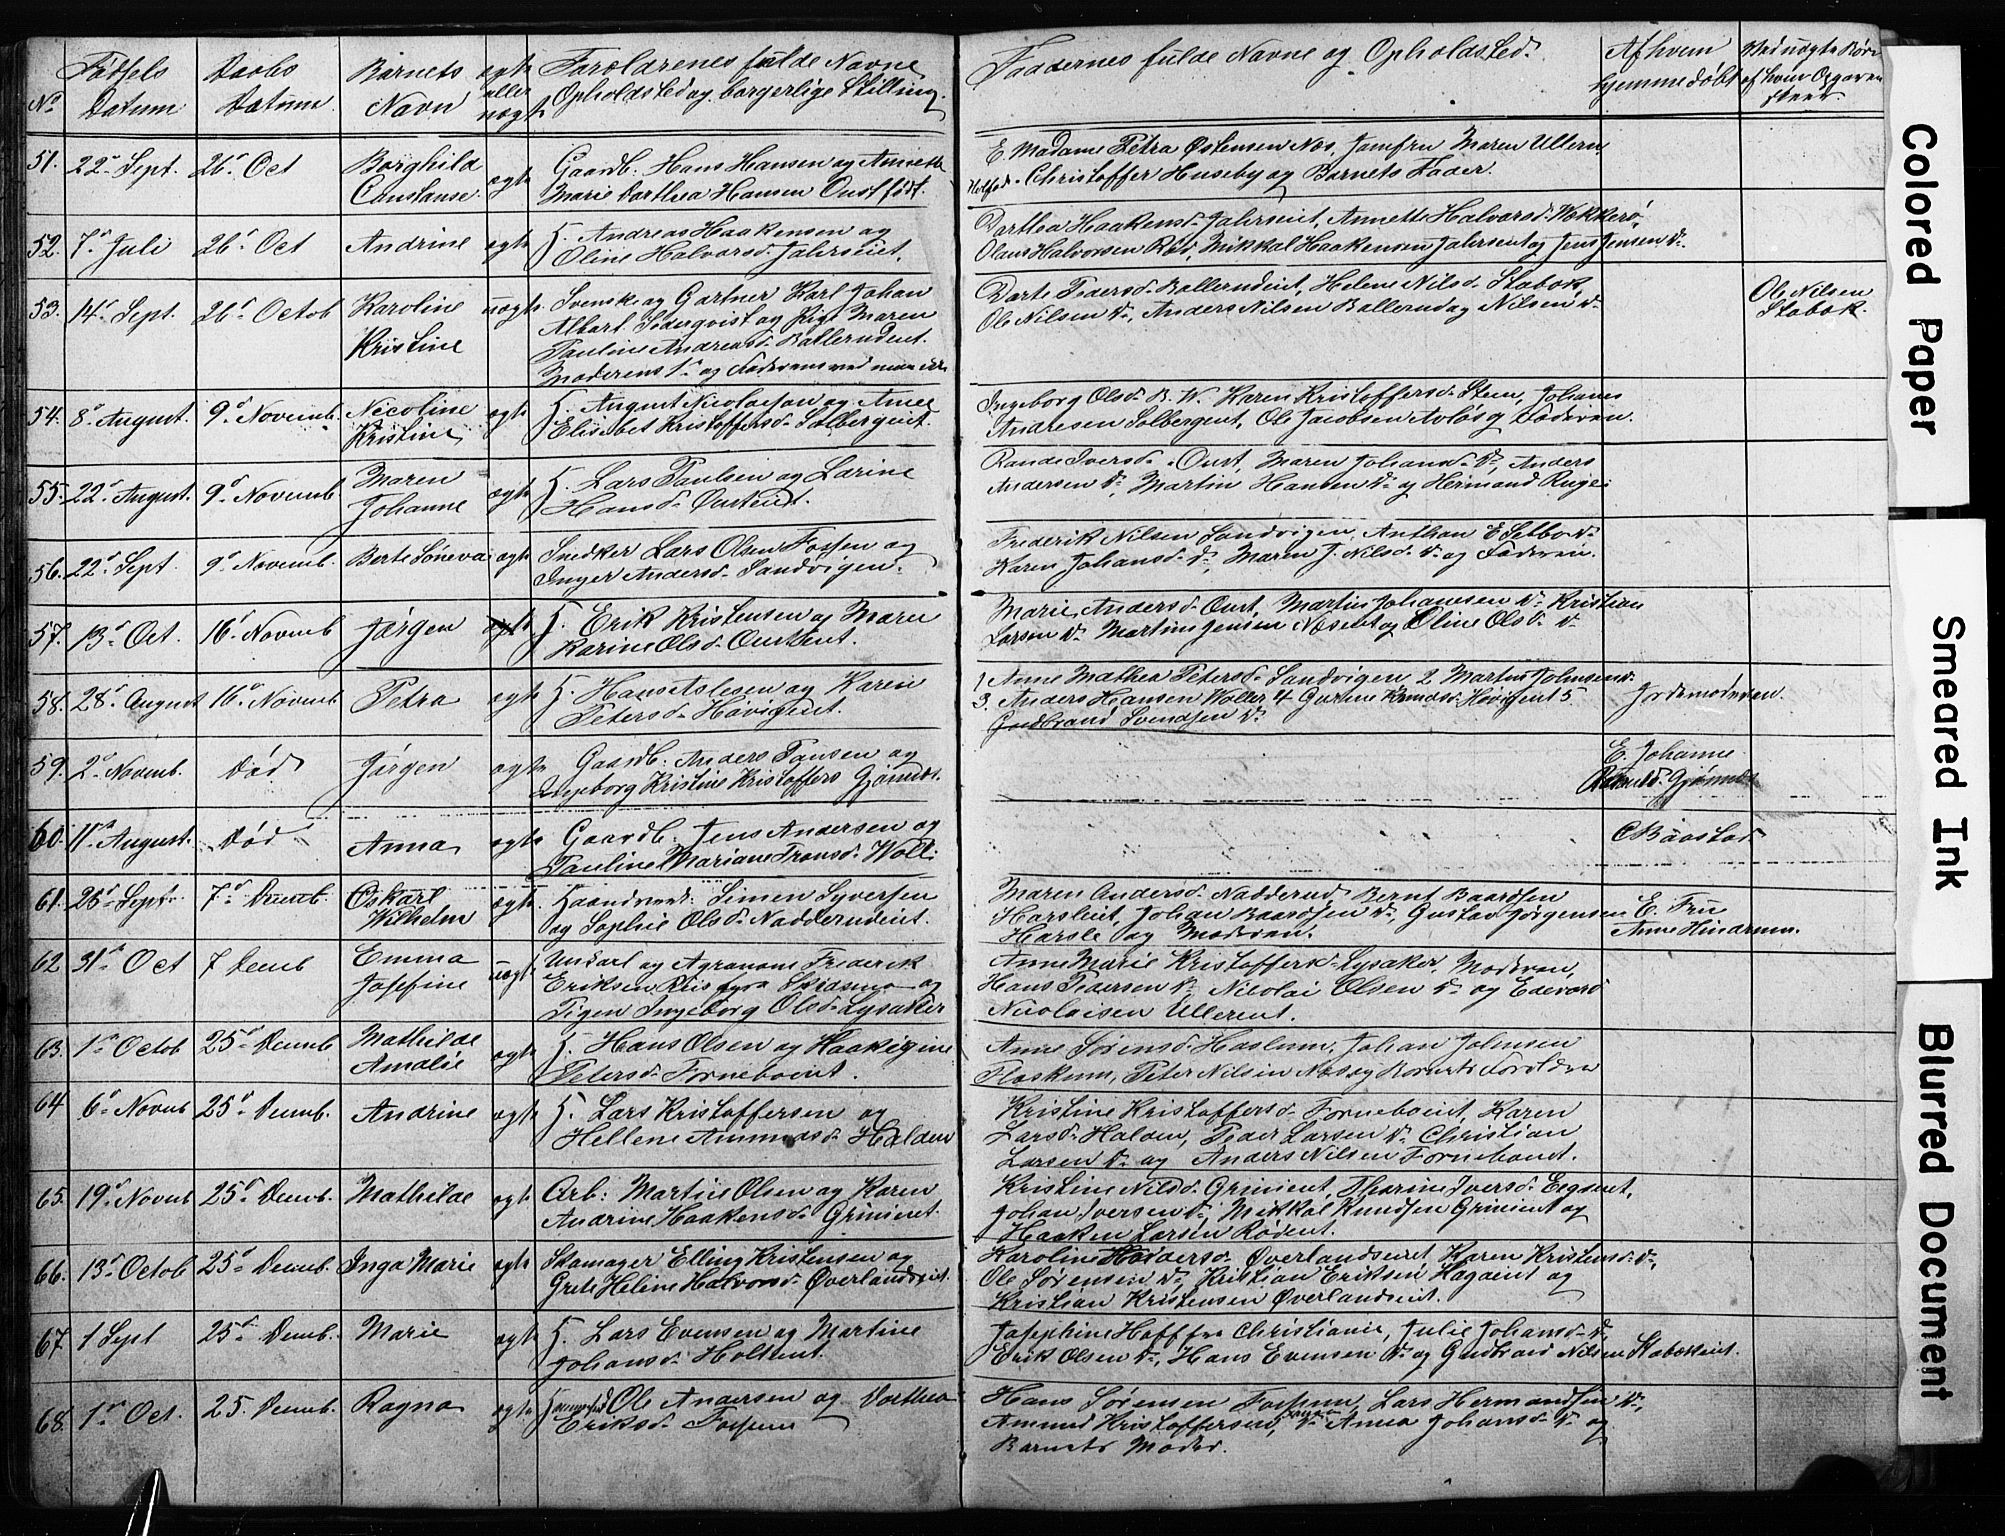 No
Fødsels
Datum
Daabs
Datum
Barnets
Navn
ægte
eller
uægte
Forældrenes fulde Navne
Opholdsted og borgerlige Stilling.
Faddernes fulde Navne og Opholdsted.
Af hvem
hjemmedøbt
Ved uægte Børn
af hvem Opgaven
skeer.
51. 22 Sept. 26 Oct Borghild ægte Gaardb. Hans Hansen og Annette
Constanse. Marie Dorthea Hansen Oust født.
E. Madame Petra Østensen Næs, Jomfru Maren Ullern
Christoffer Huseby og Barnets Fader.
52. 7 Juli 26 Oct Andrine ægte H. Andreas Haakensen og
Oline Halvorsd. Jahrseiet.
Dorthea Haakensd. Jahrseiet, Annette Halvorsd. Vækkerø
Olaus Halvorsen Rød, Mikkal Haakensen Jahrseiet og Jens Jensen Do.
53. 14 Sept. 26 Octob Karoline uægte Svenske og Gartner Karl Johan
Kristine Albert Søderqvist og Pige Maren
Pauline Andreasd. Ballerudeiet.
Moderens 1ste og Faderens ved man ikke
Dorte Pedersd. Ballerudeiet, Helene Nilsd. Stabæk
Ole Nilsen Do, Anders Nilsen Ballerud og Nilsen Do
Ole Nilsen
Stabæk.
54. 8 August. 9 Novemb. Nicoline ægte H. August Nicolaisen og Anne
Kristine Elisabet Kristoffersd. Solbergeiet.
Ingeborg Olsd. B. W. Karen Kristoffersd. Steen, Johanes
Andresen Solbergeiet, Ole Jacobsen Avløs og Faderen.
55. 22 August. 9 Novemb Maren ægte H. Lars Paulsen og Larine
Johanne Hansd. Ousteiet.
Rande Iversd. Oust, Maren Johansd. Do, Anders
Andersen Do, Martin Hansen Do og Hermand Ruge.
56. 22 Sept. 9 Novemb. Berte Søneva ægte Snedker Lars Olsen Fossen og
Inger Andersd. Sandvigen.
Frederik Nilsen Sandvigen, Anthon E Sætbo Do
Karen Johansd. Do, Maren J. Nilsd. Do og Faderen.
57. 13 Oct. 16 Novemb Jørgen ægte H. Erik Kristensen og Maren
Karine Olsd. Ousteiet.
Marie Andersd. Oust, Martin Johannesen Do Kristian
Larsen Do Martin Jensen Næseiet og Oline Olsd. Do
58. 28 August 16 Novemb. Petra ægte H. Hans Aslesen og Karen
Petersd. Høvigeiet.
1 Anne Mathea Petersd. Sandvigen 2 Martin Johnsen Do
3. Anders Hansen Woller 4 Gurine Høvigeiet 5.
Gudbrand Svendsen Do
Jordemoderen.
59. 2 Novemb. Død Jørgen ægte Gaardb. Anders Paulsen og
Ingeborg Kristine Kristoffers Gjønnes.
E. Johanne
Gjønnes
60. 11 August. Død Anna ægte Gaardb. Jens Andersen og
Pauline Mariane Fransd. Woll.
C Baastad
61. 26 Sept. 7 Decemb. Oskarl ægte Haandværk: Simen Syversen
Wilhelm og Sophie Olsd. Nadderudeiet.
Maren Andersd. Nadderud, Bernt Baardsen
Harsleiet, Johan Baardsen Do, Gustav Jørgensen
Harsle og Moderen.
E. Fru
Anne Hindrum.
62 31 Oct 7 Decmb Emma uægte Ungkarl og Agronom Frederik
Josefine Eriksen fra Skedsmo og
Pigen Ingeborg Olsd. Lysaker
Anne Marie Kristoffersd. Lysaker, Moderen,
Hans Pedersen Do Nicolai Olsen Do og Edevard
Nicolaisen Ullereiet.
63. 1 Octob 25 Decemb Mathilde ægte H. Hans Olsen og Haakigine
Amalie Petersd. Forneboeiet.
Anne Sørensd. Haslum, Johan Johnsen
Flaskum, Peter Nilsen Næs og Barnets Forældre
64 6 Novmb 25 Decmb. Andrine ægte H. Lars Kristoffersen og
Hellene Ammundsd. Halden
Kristine Kristoffersd. Forneboeiet, Karen
Larsd. Halden, Peder Larsen Do Christian
Larsen Do og Anders Nilsen Forneboeiet.
65. 19 Novmb 25 Decmb. Mathilde ægte Arb: Martin Olsen og Karen
Andrine Haakensd. Grinieiet.
Kristine Nilsd. Grinieiet, Thorine Iversd. Eegseiet,
Johan Iversen Do, Mikkal Knudsen Grinieiet og
Haaken Larsen Rødeiet.
66. 13 Octob 25 Decmb. Inga Marie ægte Skomager Elling Kristensen og
Grete Heline Halvorsd. Øverlandseiet.
Karoline Øverlandseiet, Karen Kristensd. Do,
Ole Sørensen Do, Kristian Eriksen Hagaeiet og
Kristian Kristensen Øverlandseiet.
67. 1 Sept 25 Decmb. Marie ægte H. Lars Evensen og Martine
Johansd. Holteiet.
Josephine Hoff fra Christiania, Julie Johansd. Do,
Erik Olsen Do, Hans Evensen Do og Gudbrand Nilsen Stabækeiet.
68. 1 Oct. 25. Decmb. Ragna ægte Ole Andersen og Dorthea
Eriksd. Fossum
Hans Sørensen Fossum, Lars Hermandsen Do,
Amund Kristoffersen, Do Anna Johansd. Do og
Barnets Moder.
Colored Paper
Smeared Ink
Blurred Document